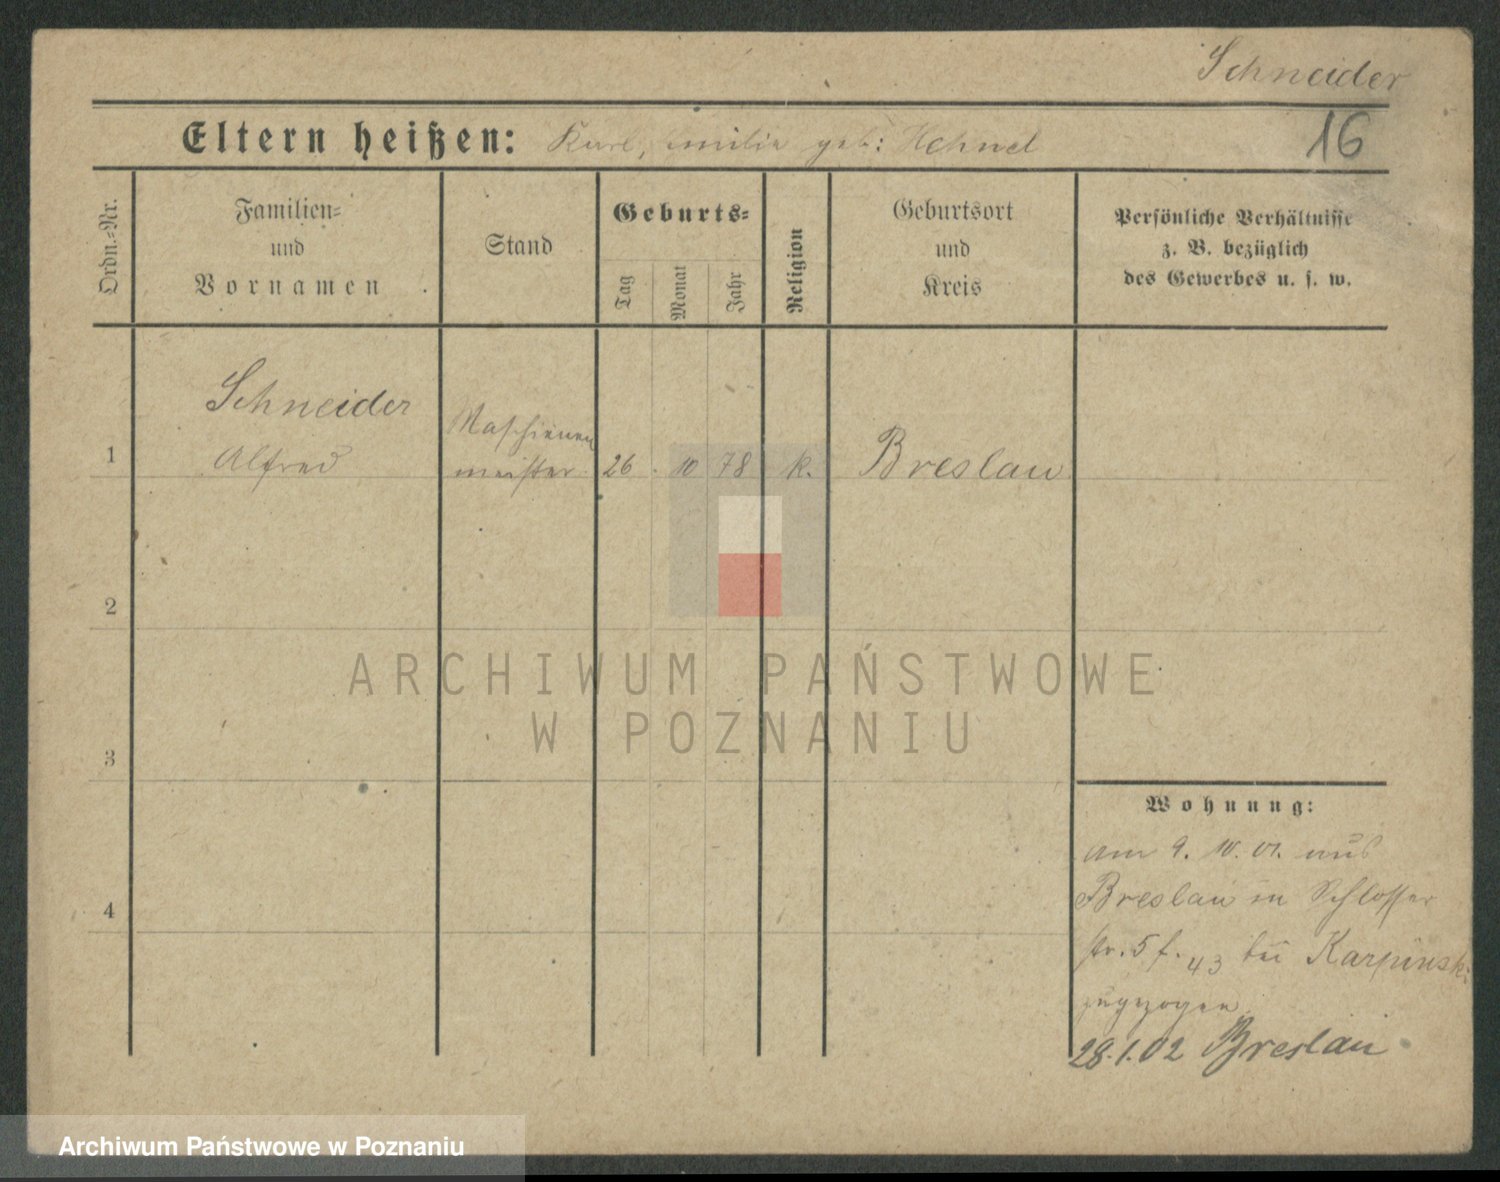 Schneider
Eltern heißen: Karl, Emilie geb: Hehnel
16
Ordn.-Nr.
Familien-
und
Vornamen
Stand
Geburts-
Tag
Monat
Jahr
Religion
Geburtsort
und
Kreis
Persönliche Verhältnisse
z. B. bezüglich
des Gewerbes u. s. w.
1
Schneider
Alfred
Maschienen
meister
26
10
78
k.
Breslau
2
3
4
Wohnung:
am 9. 10. 01. aus
Breslau in Schlosser
str. 5 f. 43 bei Karpinski
zugezogen
28.1.02 Breslau
ARCHIWUM PAŃSTWOWE
W POZNANIU
Archiwum Państwowe w Poznaniu